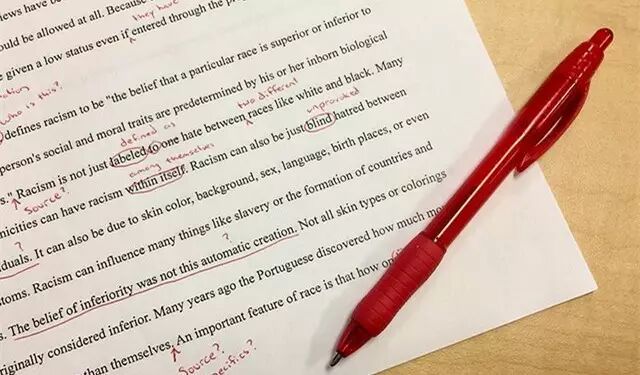 iews have b
ould be allowed at all. Because
they have
e given a low status even if entered through the pr
who is this?
defines racism to be "the belief that a particular race is superior or inferior to
person's social and moral traits are predetermined by his or her inborn biological
two different
unprovoked
s." Racism is not just labeled to one hate between races like white and black. Many
defined as
among themselves
Source?
nicities can have racism within itself. Racism can also be just blind hatred between
duals. It can also be due to skin color, background, sex, language, birth places, or even
?
toms. Racism can influence many things like slavery or the formation of countries and
s. The belief of inferiority was not this automatic creation. Not all skin types or colorings
riginally considered inferior. Many years ago the Portuguese discovered how much mor
than themselves. An important feature of race is that how on
Source?
pecifics?